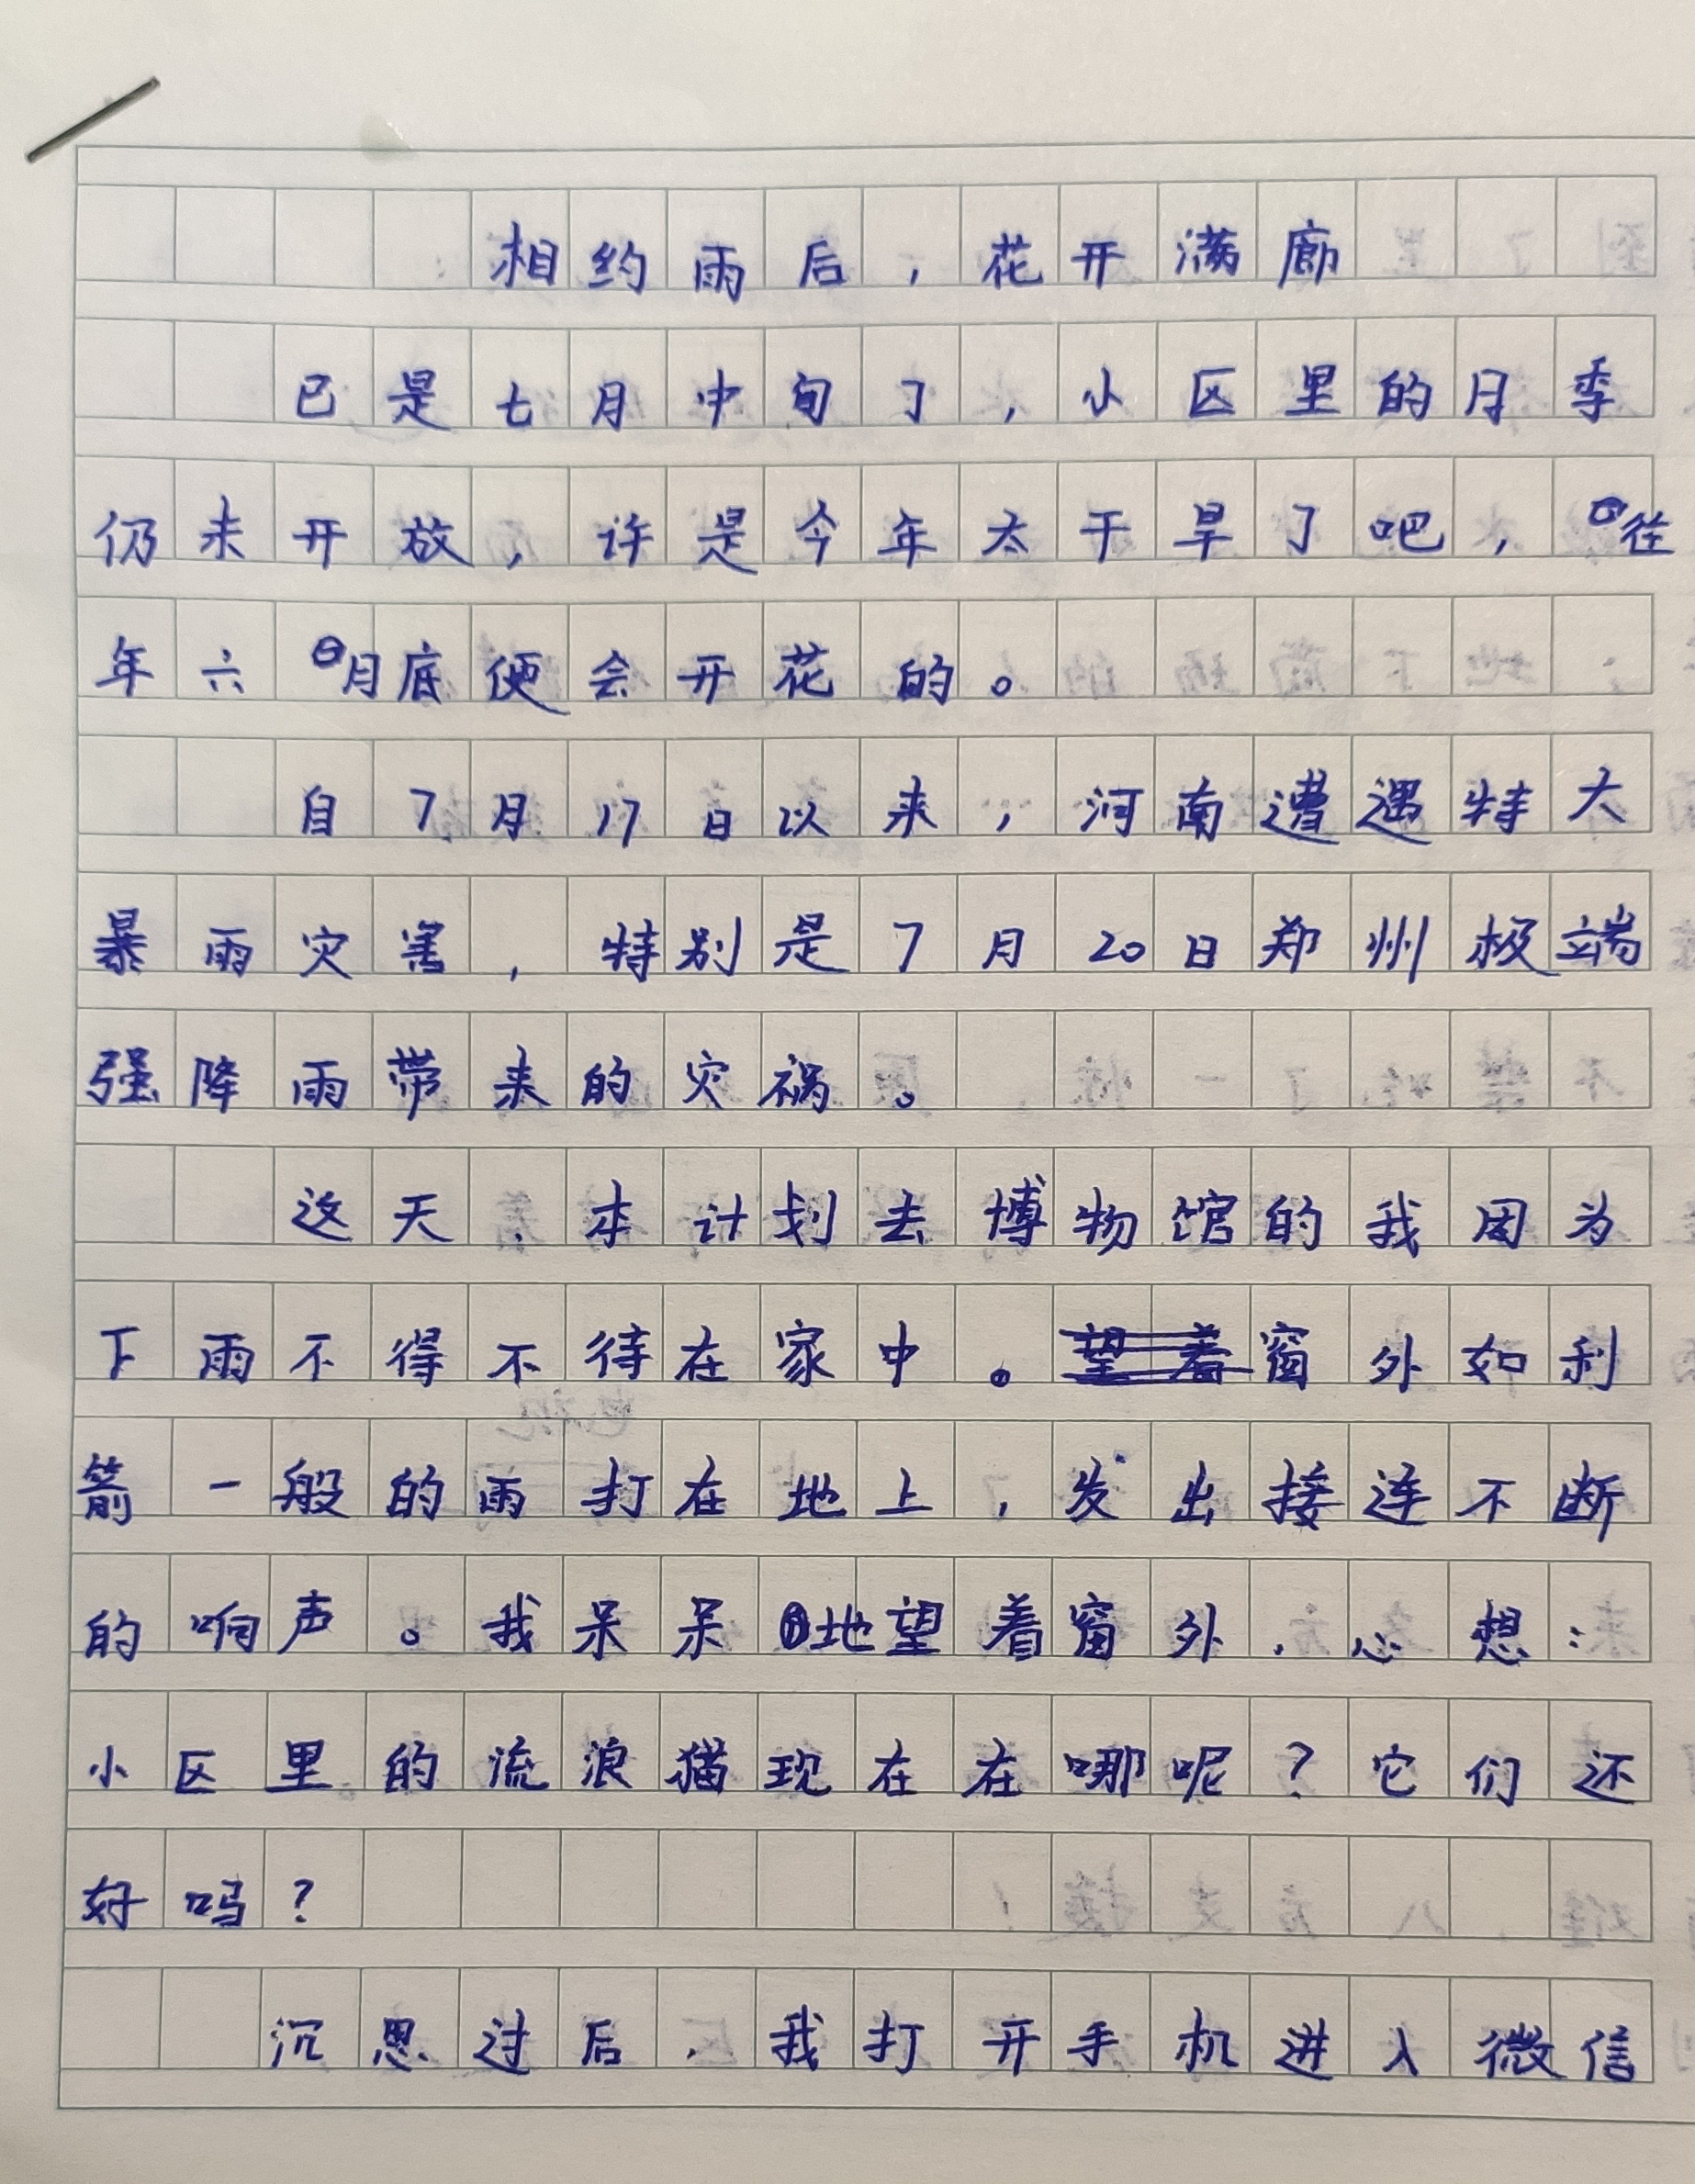 相约雨后，花开满廊
已是七月中旬了，小区里的月季
仍未开放，许是今年太干旱了吧，往
年六月底便会开花的。
自7月17日以来，河南遭遇特大
暴雨灾害，特别是7月20日郑州极端
强降雨带来的灾祸。
这天，本计划去博物馆的我因为
下雨不得不待在家中。窗外如利
箭一般的雨打在地上，发出接连不断
的响声。我呆呆地望着窗外，心想：
小区里的流浪猫现在在哪呢？它们还
好吗？
沉思过后，我打开手机进入微信